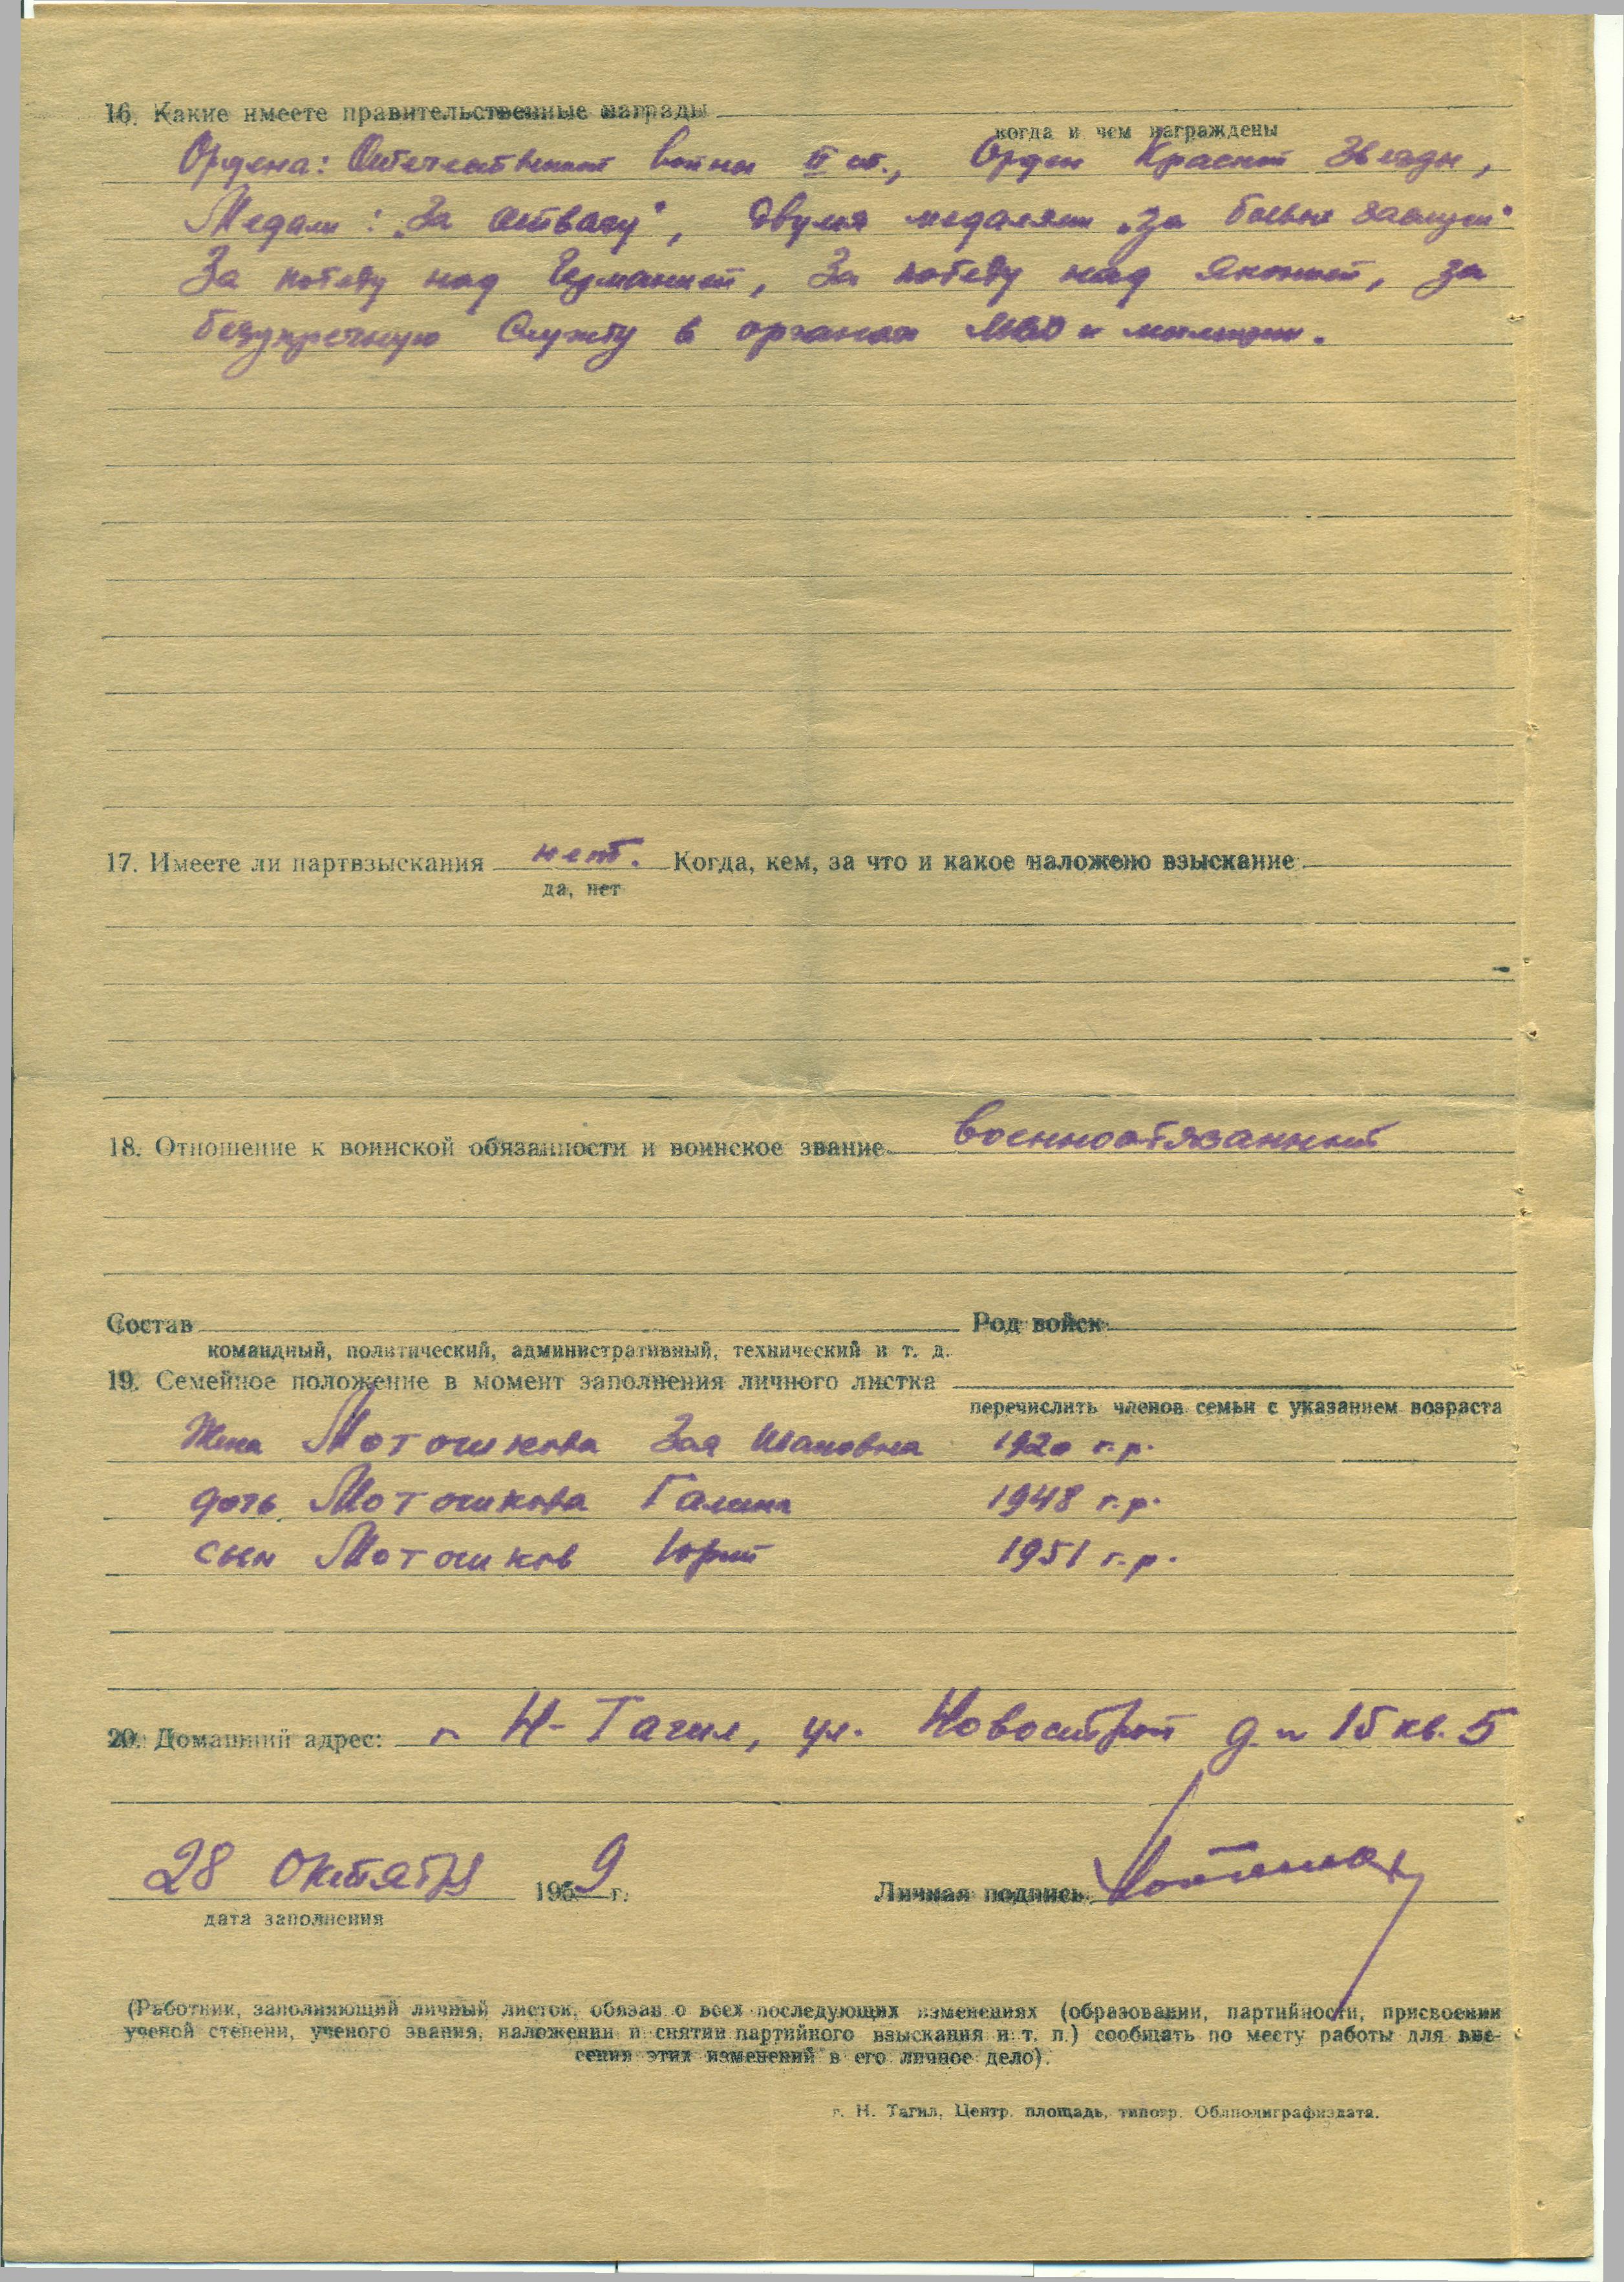 16. Какие имеете правительственные награды
когда и чем награждены
Ордена: Отечественной войны II ст., Орден Красной Звезды,
Медали: „За отвагу", двумя медалями „За боевые заслуги"
За победу над Германией, За победу над Японией, за
безупречную службу в органах МВД и милиции.
17. Имеете ли партвзыскания нет. Когда, кем, за что и какое наложено взыскание
да, нет
18. Отношение к воинской обязанности и воинское звание военнообязанный
Состав Род войск
командный, политический, административный, технический и т. д.
19. Семейное положение в момент заполнения личного листка
перечислить членов семьи с указанием возраста
Жена Моточикова Зоя Ивановна 1920 г.р.
дочь Моточикова Галина 1948 г.р.
сын Моточиков Юрий 1951 г.р.
20. Домашний адрес: г. Н-Тагил, ул. Новострой д. № 15 кв. 5
28 октября 1969 г. Личная подпись
дата заполнения
(Работник, заполняющий личный листок, обязан о всех последующих изменениях (образовании, партийности, присвоении
ученой степени, ученого звания, наложении и снятии партийного взыскания и т. п.) сообщать по месту работы для вне-
сения этих изменений в его личное дело).
г. Н. Тагил, Центр. площадь, типогр. Облполиграфиздата.